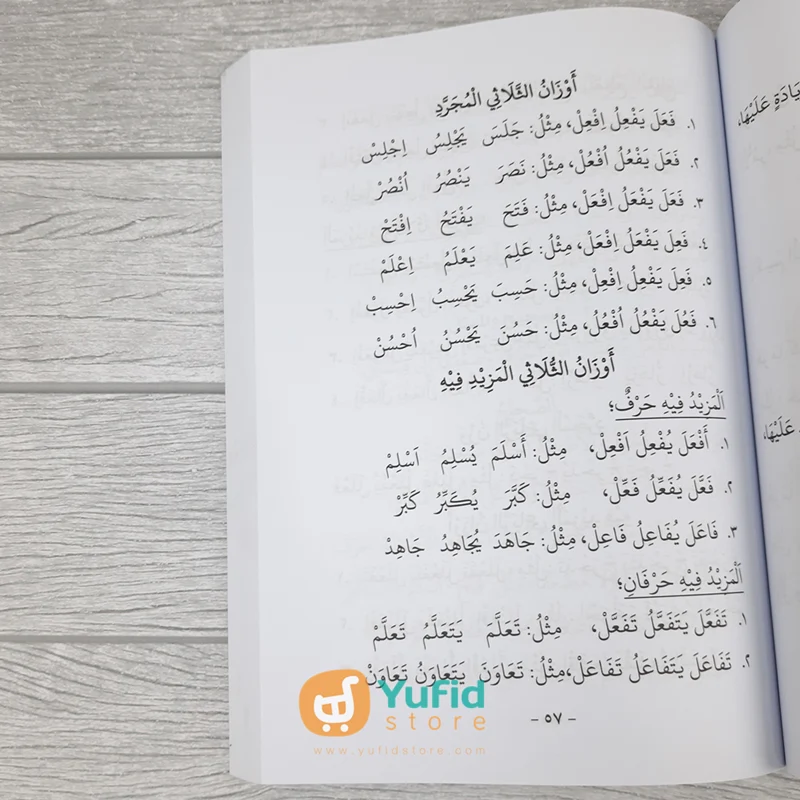 أَوْزَانُ الثَّلَاثِي الْمُجَرَّدِ
١. فَعَلَ يَفْعِلُ اِفْعِلْ، مِثْلُ: جَلَسَ يَجْلِسُ اِجْلِسْ
٢. فَعَلَ يَفْعُلُ اُفْعُلْ، مِثْلُ: نَصَرَ يَنْصُرُ اُنْصُرْ
٣. فَعَلَ يَفْعَلُ اِفْعَلْ، مِثْلُ: فَتَحَ يَفْتَحُ اِفْتَحْ
٤. فَعِلَ يَفْعَلُ اِفْعَلْ، مِثْلُ: عَلِمَ يَعْلَمُ اِعْلَمْ
٥. فَعِلَ يَفْعِلُ اِفْعِلْ، مِثْلُ: حَسِبَ يَحْسِبُ اِحْسِبْ
٦. فَعُلَ يَفْعُلُ اُفْعُلْ، مِثْلُ: حَسُنَ يَحْسُنُ اُحْسُنْ
أَوْزَانُ الثُّلَاثِي الْمَزِيْدِ فِيْهِ
اَلْمَزِيْدُ فِيْهِ حَرْفٌ؛
١. أَفْعَلَ يُفْعِلُ اَفْعِلْ، مِثْلُ: أَسْلَمَ يُسْلِمُ اَسْلِمْ
٢. فَعَّلَ يُفَعِّلُ فَعِّلْ، مِثْلُ: كَبَّرَ يُكَبِّرُ كَبِّرْ
٣. فَاعَلَ يُفَاعِلُ فَاعِلْ، مِثْلُ: جَاهَدَ يُجَاهِدُ جَاهِدْ
اَلْمَزِيْدُ فِيْهِ حَرْفَانِ؛
١. تَفَعَّلَ يَتَفَعَّلُ تَفَعَّلْ، مِثْلُ: تَعَلَّمَ يَتَعَلَّمُ تَعَلَّمْ
٢. تَفَاعَلَ يَتَفَاعَلُ تَفَاعَلْ، مِثْلُ: تَعَاوَنَ يَتَعَاوَنُ تَعَاوَنْ
- ٥٧ -
Yufid
store
www.yufidxtore.com
عَلَيْهَا،
عَلَيْهَا،